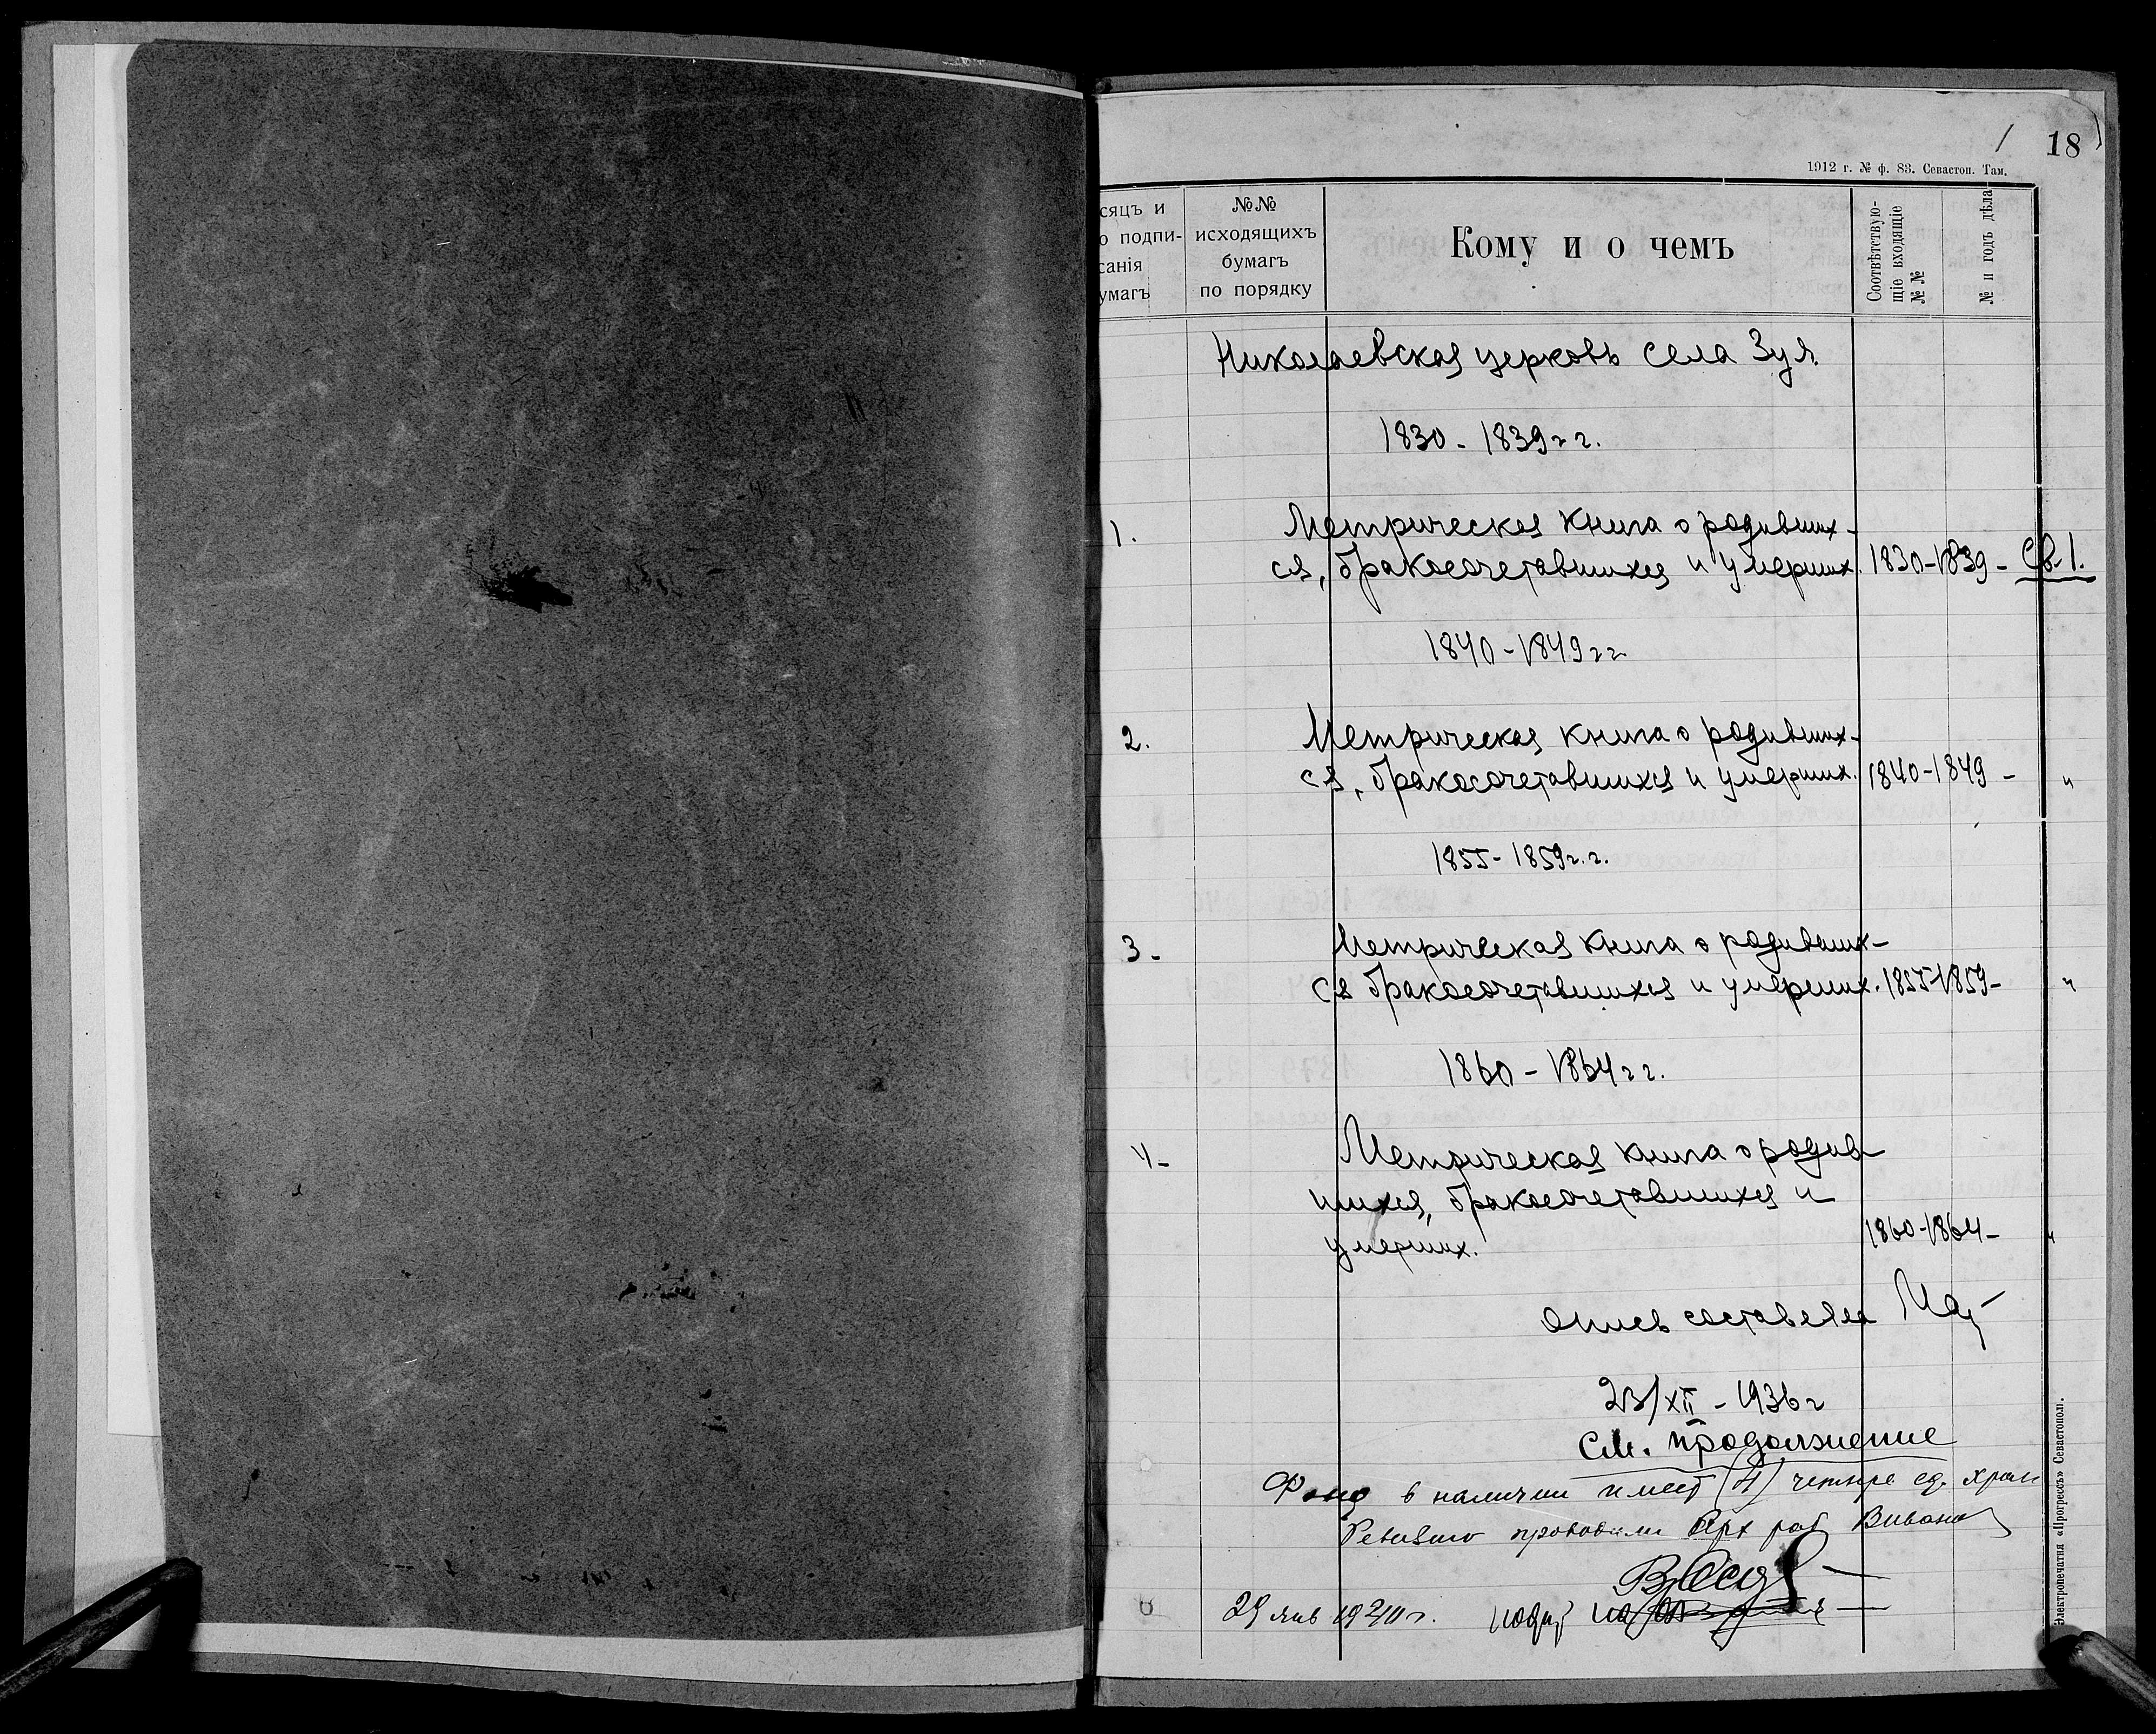 18
1912 г. № ф. 83. Севастоп. Там.
сяцъ и
о подпи-
санія
умагъ
№№
исходящихъ
бумагъ
по порядку
Кому и о чемъ
Соотвѣтствую-
щіе входящіе
№ №
№ и годъ дѣла
Николаевская церковь села Зуя
1830 - 1839 г г.
1. Метрическая книга о родивших-
ся, бракосочетавшихся и умерших. 1830-1839 - Св. 1.
1840 - 1849 г г
2. Метрическая книга о родивших-
ся, бракосочетавшихся и умерших. 1840-1849 - "
1855 - 1859 г. г.
3. Метрическая книга о родивших-
ся бракосочетавшихся и умерших. 1855-1859 - "
1860 - 1864 г г.
4. Метрическая книга о родив-
шихся, бракосочетавшихся и
умерших. 1860-1864 - "
Опись составлена
23/XII - 1936 г
См. продолжение
Фонд в наличии имеет (4) четыре ед. хран
Ревизию проводили Арх раб
29 янв 1940 г.
Электропечатня «Прогрессъ» Севастопол.